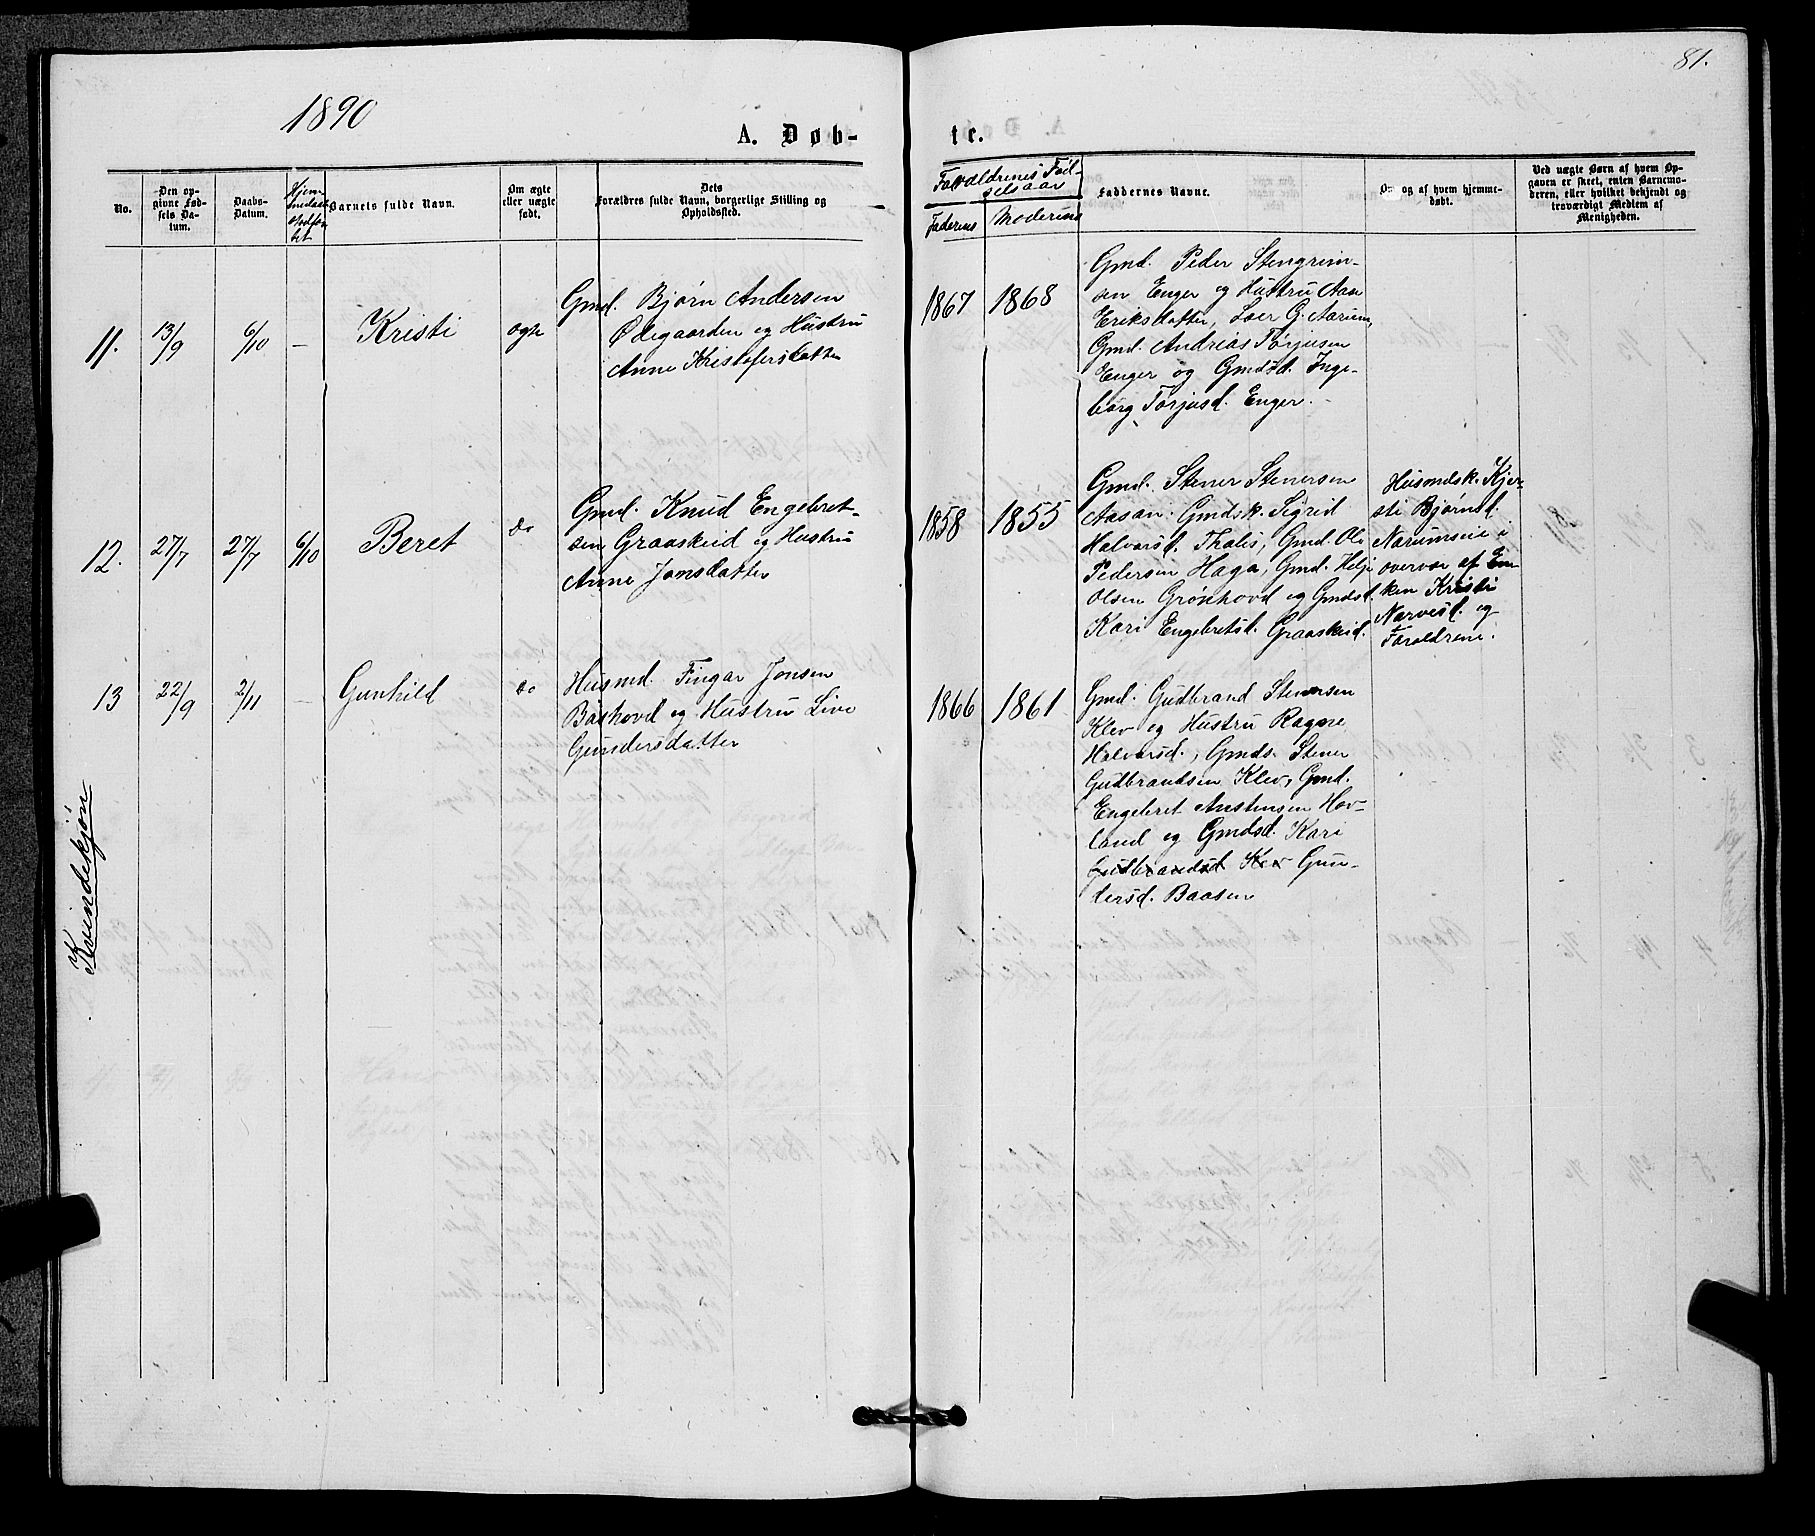 1890
81.
A. Døb-
te.
No.
Den op-
givne Fød-
sels Da-
tum.
Daabs-
Datum.
Hjem-
Barnets fulde Navn.
Om ægte
eller uægte
født.
Dets
Forældres fulde Navn, borgerlige Stilling og
Opholdssted.
Forældrenes Fød-
selsaar
Faderens
Moderens
Faddernes Navne.
Om og af hvem hjemme-
døbt.
Ved uægte Børn af hvem Op-
gaven er skeet, enten Barnemo-
deren, eller hvilket bekjendt og
troværdigt Medlem af
Menigheden.
11.
13/9
6/10
—
Kristi
ægte
Gmd. Bjørn Andersen
Ødegaarden og Hustru
Anne Kristofersdatter
1867
1868
Gmd. Peder Stengrim-
sen Enger og Hustru Aan
Eriksdatter, G. Narum,
Gmd. Andrias Torjusen
Enger og Gmdsd. Inge-
borg Torjusd. Enger.
12.
27/7
27/7
6/10
Beret
do
Gmd. Knud Engebret-
sen Graaskud og Hustru
Anne Jonsdatter
1858
1855
Gmd. Stener Stenersen
Aasan, Gmdsk. Sigrid
Halvorsd. Thalis, Gmd. Ole
Pedersen Haga, Gmd. Helje
Olsen Grønhovd og Gmdsd.
Kari Engebretsd. Graaskud.
Husmdsk. Kjer-
sti Bjørnsd.
Narumseie i
overvær af En-
ken Kristi
Narvesd. og
Forældrene.
13
22/9
2/11
—
Gunhild
do
Husmd. Fingar Jonsen
Bashovd og Hustru Live
Gundersdatter
1866
1861
Gmd. Gudbrand Stenersen
Klev og Hustru Ragne
Halvorsd., Gmds. Stener
Gudbrandsen Klev, Gmd.
Engebret Austensen Hov-
land og Gmdsd. Kari
Gudbrandsd. Klev Gun-
dersd. Baasen
Kvindekjøn